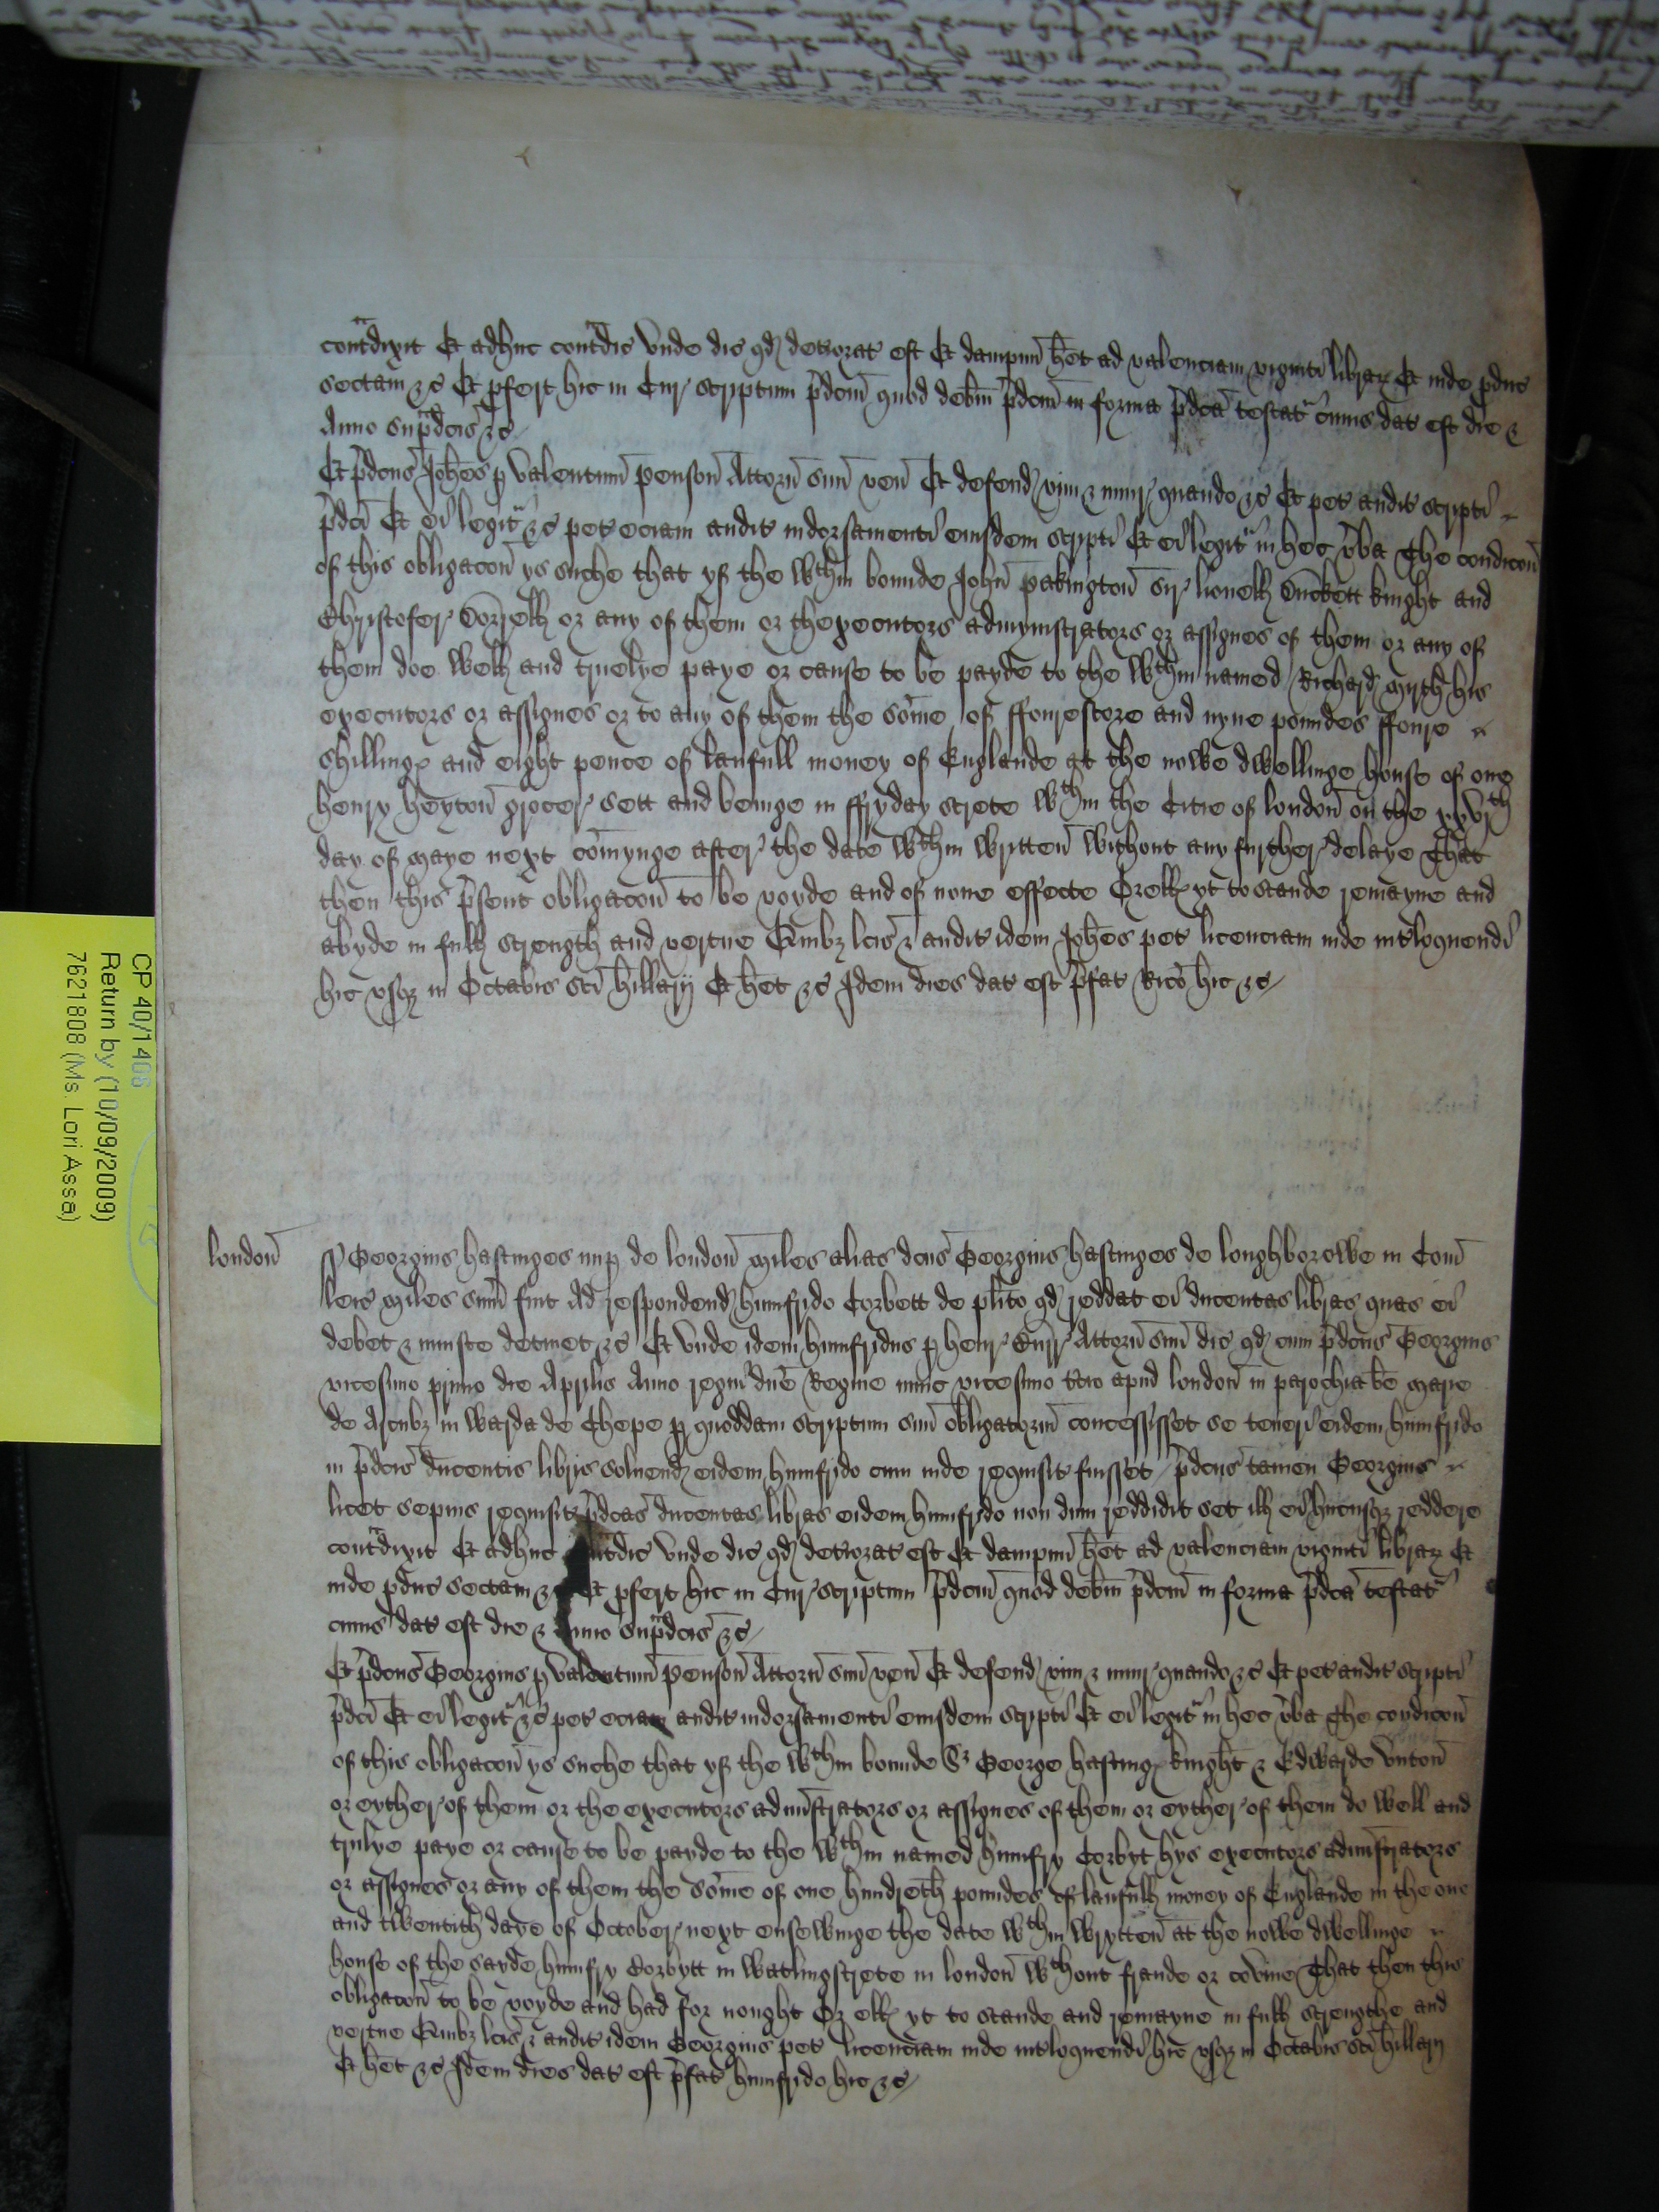 contradixit Et adhuc contradic Unde dic qd deteriorat est Et dampnu het ad valenciam viginti librar Et inde pduc
sectam &c Et pfert hic in Cur scriptum pdcm quod debm pdcm in forma pdca testat cuius dat est die &
Anno supradcis &c
Et pdcus Johes p Valentinu Penson Attorn suu ven Et defend vim & iniur quando &c Et pet audit scripti
pdci Et ei legit &c pet eciam audit indorsamenti eiusdem scripti Et ei legit in hec vba The condicon
of this obligacon ys suche that yf the wthin bounde John Pakington Sir Lionell Duckett knight and
Christofer or any of them or thexecutors admynistrators or assignes of them or any of
them doe well and truelye paye or cause to be payde to the wthin named Richard his
executors or assignes or to any of them the some of ffourescore and nyne poundes ffoure
shillings and eight pence of laufull money of Englande at the nowe dwellinge house of one
henry heyton grocer sett and beinge in ffryday strete wthin the Citie of london on the xxvjth
day of Maye next comynge after the date wthin written without any further delaye That
then this psent obligacon to be voyde and of none effecte Orells yt to stande remayne and
abyde in full strength and vertue Quibz lcis & audit idem Johes pet licenciam inde intloquendi
hic usqz in Octabis sci hillarij Et het &c Idem dies dat est pfat Rico hic &c
london
ss Georgius hastinges nup de london Miles alias dcus Georgius hastinges de loughborowe in Com
leic Miles sum fuit Ad respondend humfrido Corbett de plito qd reddat ei ducentas libras quas ei
debet & iniuste detinet &c Et Unde idem humfridus p henr Attorn suu dic qd cum pdcus Georgius
vicesimo primo die Aprilis Anno regni dne Regine nunc vicesimo tcio apud london in parochia be Marie
de Arcubz in Warda de Chepe p quoddam scriptum suu obligatoriu concessisset se teneri eidem humfrido
in pdcis ducentis libris solvend eidem humfrido cum inde requisit fuisset pdcus tamen Georgius
licet sepius requisit pdcas ducentas libras eidem humfrido non dum reddidit set ill ei hucusqz reddere
contradixit Et adhuc contradic Unde dic qd deteriorat est Et dampnu het ad valenciam viginti librar Et
inde pduc sectam &c Et pfert hic in Cur scriptum pdcm quod debm pdcm in forma pdca testat
cuius dat est die & Anno supradcis &c
Et pdcus Georgius p Valentinu Penson Attorn suu ven Et defend vim & iniur quando &c Et pet audit scripti
pdci Et ei legit &c pet eciam audit indorsamenti eiusdem scripti Et ei legit in hec vba The condicon
of this obligacon ys suche that yf the wthin bounde Sr George hastings knight & Edwarde Unton
or eyther of them or the executors administrators or assignes of them or eyther of them do well and
trulye paye or cause to be payde to the wthin named humfry Corbyt hys executors administrators
or assignes or any of them the some of one hundreth poundes of laufull money of Englande in the one
and twentith daye of October next ensewinge the date wthin wrytten at the nowe dwellinge
house of the sayde humfry Corbytt in Watlingstrete in london wthout fraude or covine That then this
obligacon to be voyde and had for nought Or ells yt to stande and remayne in full strengthe and
vertue Quibz lcis & audit idem Georgius pet licenciam inde intloquendi hic usqz in Octabis sci hillarij
Et het &c Idem dies dat est pfat humfrido hic &c
CP 40/1406
Return by (10/09/2009)
7621808 (Ms. Lori Assa)